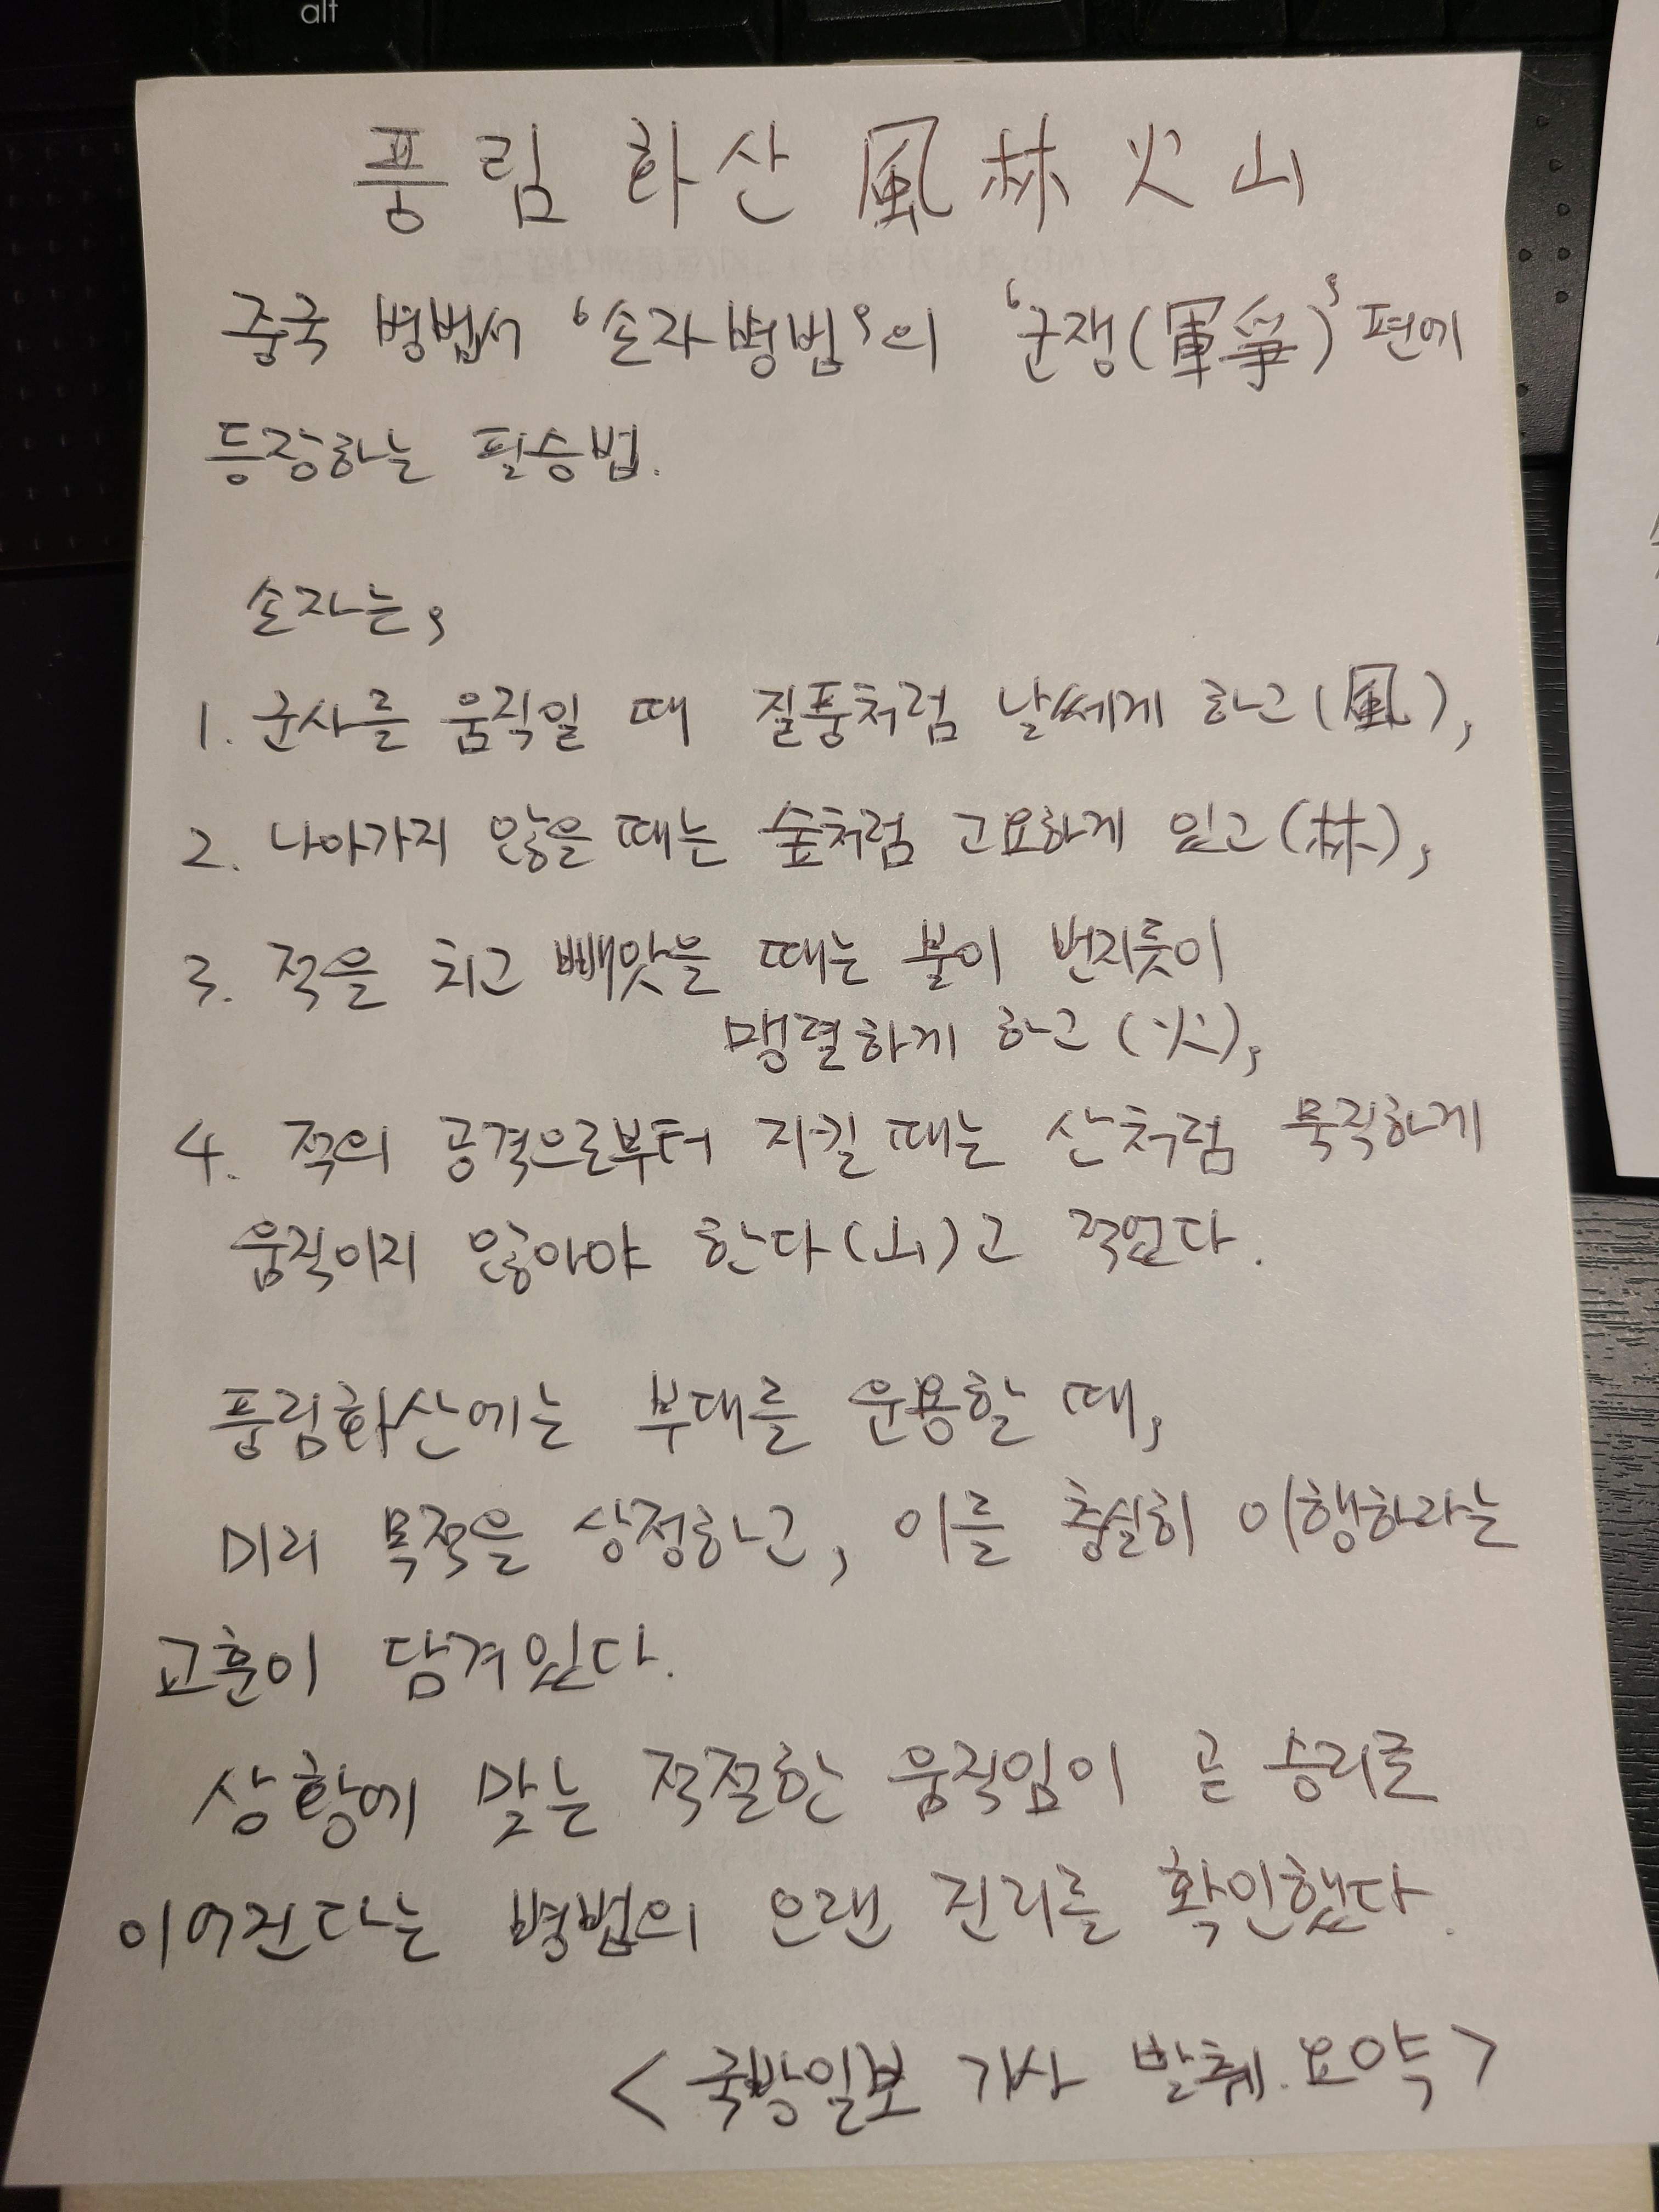 alt
풍림화산 風林火山
중국 병법서 '손자병법'의 '군쟁(軍爭)'편에
등장하는 필승법.
손자는,
1. 군사를 움직일 때 질풍처럼 날쎄게 하고(風),
2. 나아가지 않을 때는 숲처럼 고요하게 있고(林),
3. 적을 치고 빼앗을 때는 불이 번지듯이
맹렬하게 하고(火),
4. 적의 공격으로부터 지킬 때는 산처럼 묵직하게
움직이지 않아야 한다(山)고 적었다.
풍림화산에는 부대를 운용할 때,
미리 목적을 상정하고, 이를 충실히 이행하라는
교훈이 담겨있다.
상황에 맞는 적절한 움직임이 곧 승리로
이어진다는 병법의 오랜 진리를 확인했다.
<국방일보 기사 발췌.요약>